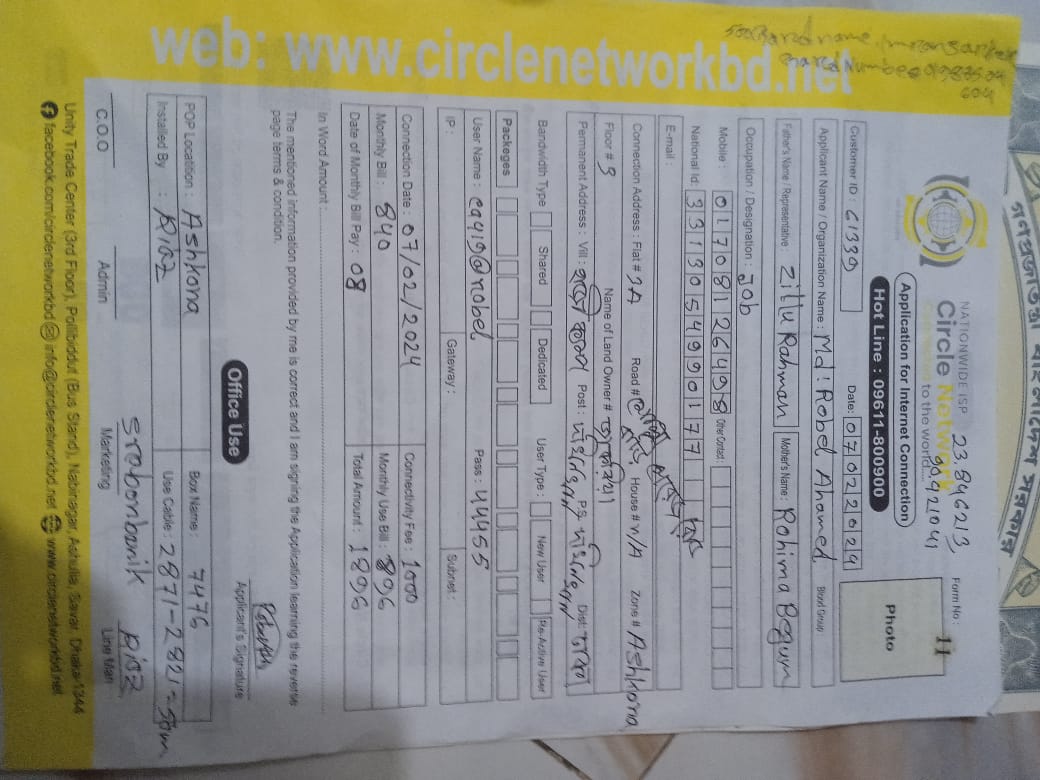 NATIONWIDE ISP
Circle Network
to the world...
23.846213
90.421041
Form No : 11
Application for Internet Connection
Hot Line : 09611-800900
Photo
Customer ID : 61339
Date: 07022024
Applicant Name / Organization Name : Md: Robel Ahamed
Blood Group
Father's Name / Representative : Zillu Rahman
Mother's Name : Rohima Begum
Occupation / Designation : Job
Mobile : 01708126498
Other Contact :
National Id: 3313054990177
E-mail :
Connection Address : Flat # 3A Road # House # N/A Zone # Ashkona
Floor # 3 Name of Land Owner #
Permanent Address : Vill : Post : P.S. Dist:
Bandwidth Type Shared Dedicated User Type : New User Re-Active User
Packeges
User Name : cq419@robel Pass : 44455
IP : Gateway : Subnet :
Connection Date : 07/02/2024 Connectivity Fee : 1000
Monthly Bill : 840 Monthly Use Bill : 896
Date of Monthly Bill Pay : 08 Total Amount : 1896
In Word Amount :
The mentioned information provided by me is correct and I am signing the Application learning the reverse
page terms & condition.
Applicant's Signature
Office Use
POP Location : Ashkona Box Name : 7476
Installed By : Riaz Use Cable : 2871-2821=50m
srabonbanik Riaz
C.O.O Admin Marketing Line Man
Unity Trade Center (3rd Floor), Pollibiddut (Bus Stand), Nabinagar, Ashulia, Savar, Dhaka-1344
facebook.com/circlenetworkbd info@circlenetworkbd.net www.circlenetworkbd.net
web: www.circlenetworkbd.net
গনপ্রজাতন্ত্রী বাংলাদেশ সরকার